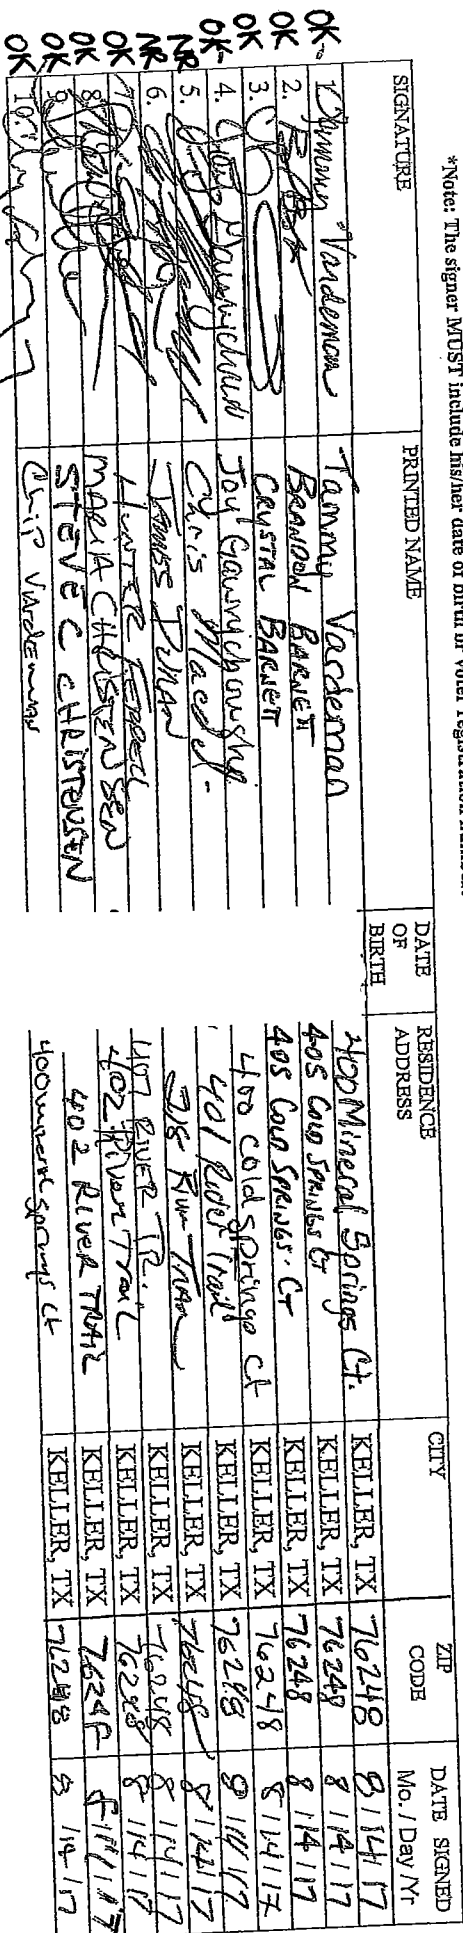 *Note: The signer MUST include his/her date of birth or voter registration number.
SIGNATURE PRINTED NAME DATE OF BIRTH RESIDENCE ADDRESS CITY ZIP CODE DATE SIGNED Mo. / Day / Yr
OK- 1. Tammy Vardeman Tammy Vardeman 400 Mineral Springs Ct. KELLER, TX 76248 8/14/17
OK 2. BRANDON BARNETT 405 COLD SPRINGS CT KELLER, TX 76248 8/14/17
OK 3. CRYSTAL BARNETT 405 COLD SPRINGS CT KELLER, TX 76248 8/14/17
OK- 4. Joy Gawrychowski 400 cold springs ct KELLER, TX 76248 8/14/17
NR 5. Chris 401 River Trail KELLER, TX 76248 8/14/17
NR 6. JAMES 318 TRAIL KELLER, TX 76248 8/14/17
OK 7. HUNTER 407 RIVER TR. KELLER, TX 76248 8/14/17
OK 8. MARIA CHRISTENSEN 402 River Trail KELLER, TX 76248 8/14/17
OK 9. STEVE C CHRISTENSEN 402 River TRAIL KELLER, TX 76248 8/14/17
OK 10. Chip Vardeman 400 mineral springs ct KELLER, TX 76248 8/14/17